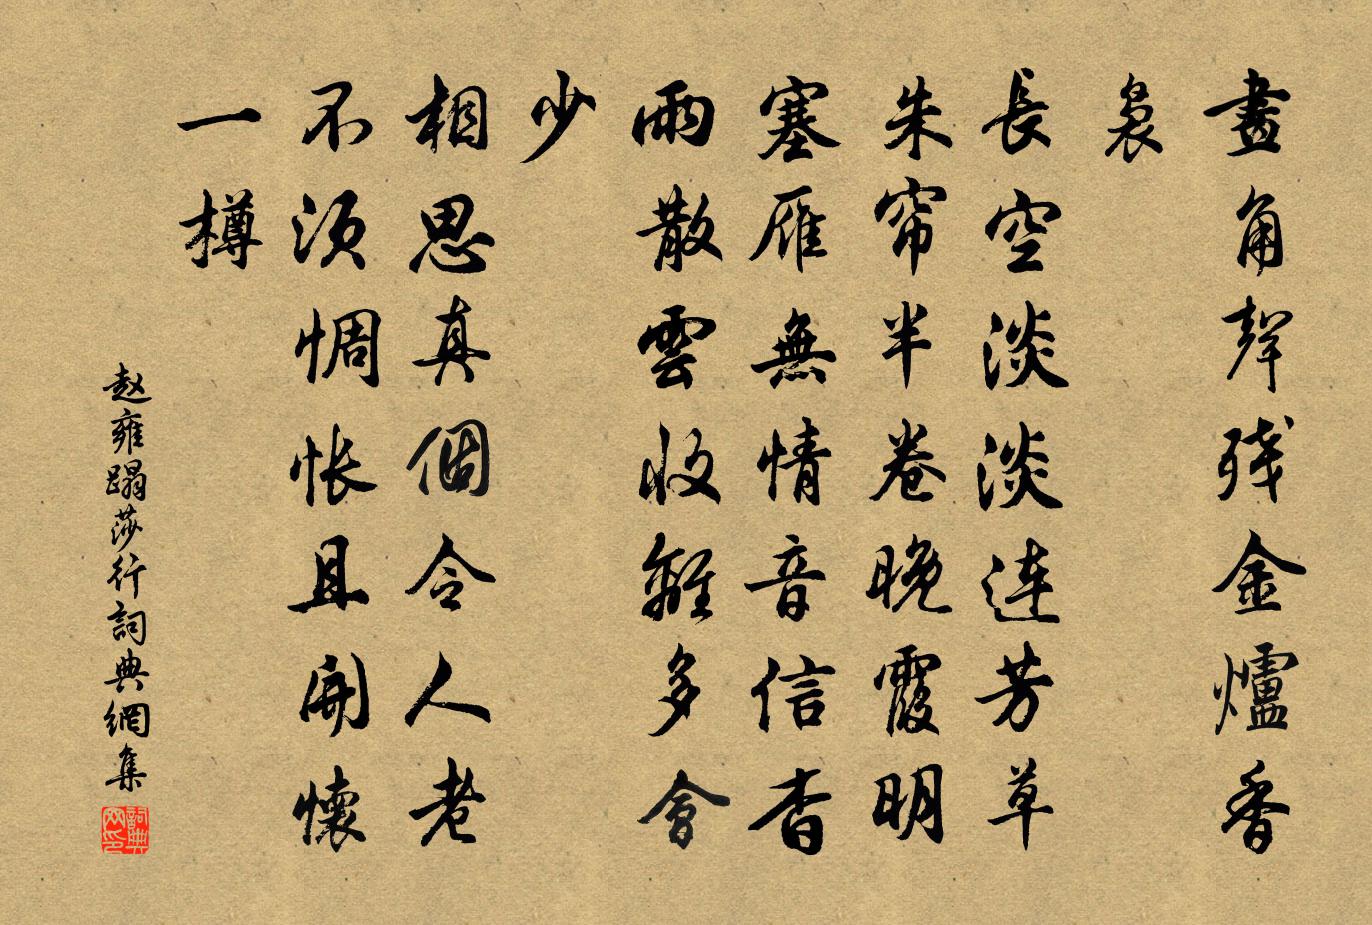 畫角聲残金爐香
裊
長空淡淡連芳草
朱帘半卷晚霞明
塞雁無情音信杳
雨散雲收離多會
少
相思真個令人老
不須惆悵且開懷
一樽
赵雍蹋莎行詞典網集
詞典
网印